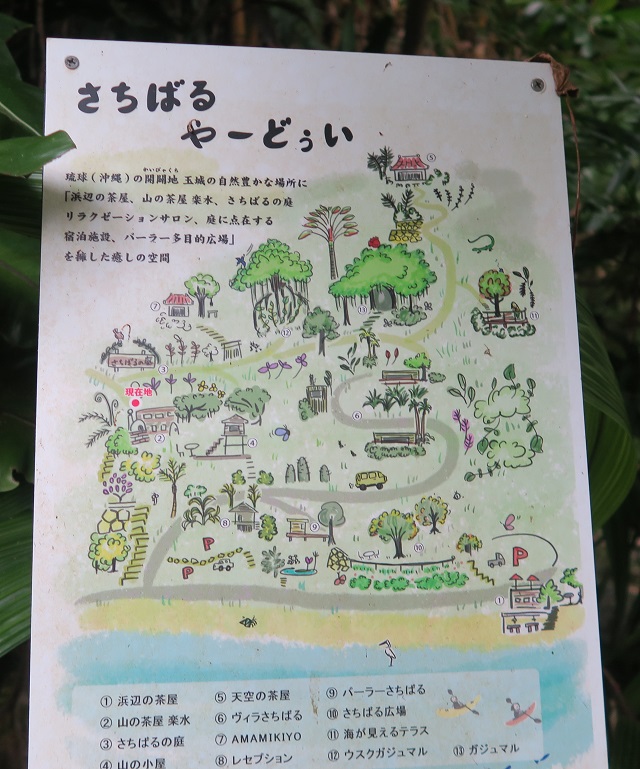 さちばる
やーどぅい
かいびゃくち
琉球(沖縄)の開闢地 玉城の自然豊かな場所に
「浜辺の茶屋、山の茶屋 楽水、さちばるの庭
リラクゼーションサロン、庭に点在する
宿泊施設、パーラー多目的広場」
を擁した癒しの空間
⑤
⑦
⑫
⑬
⑪
さちばるの庭
③
現在地
⑥
②
④
⑧
⑨
⑩
P
P
P
①
① 浜辺の茶屋
② 山の茶屋 楽水
③ さちばるの庭
④ 山の小屋
⑤ 天空の茶屋
⑥ ヴィラさちばる
⑦ AMAMIKIYO
⑧ レセプション
⑨ パーラーさちばる
⑩ さちばる広場
⑪ 海が見えるテラス
⑫ ウスクガジュマル
⑬ ガジュマル